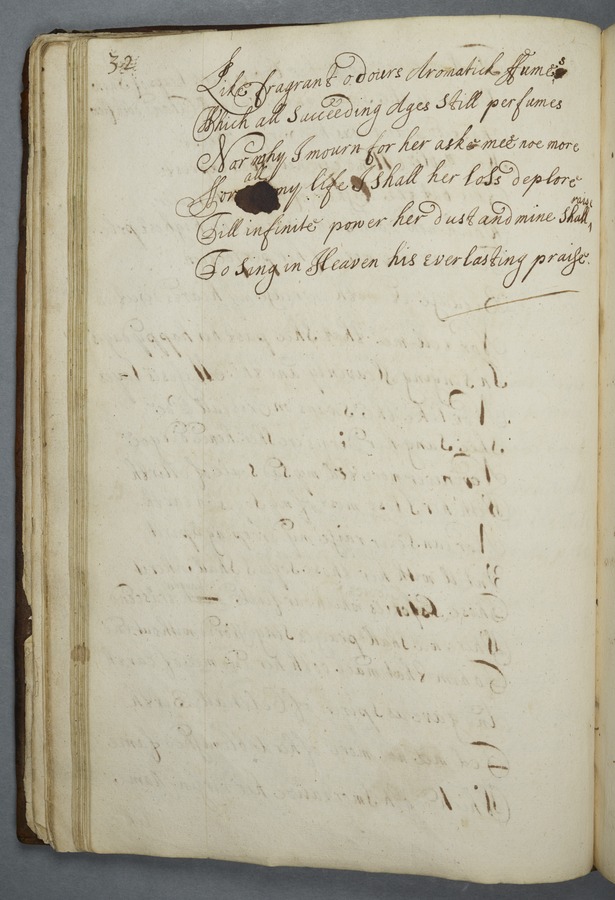 32
Like fragrant odours Aromatick ffumes
Which all Succeeding Ages Still perfumes
Nor why I mourn for her aske mee noe more
ffor all my life I shall her loss deplore
Till infinite power her dust and mine shall raise
To Sing in Heaven his everlasting praise.